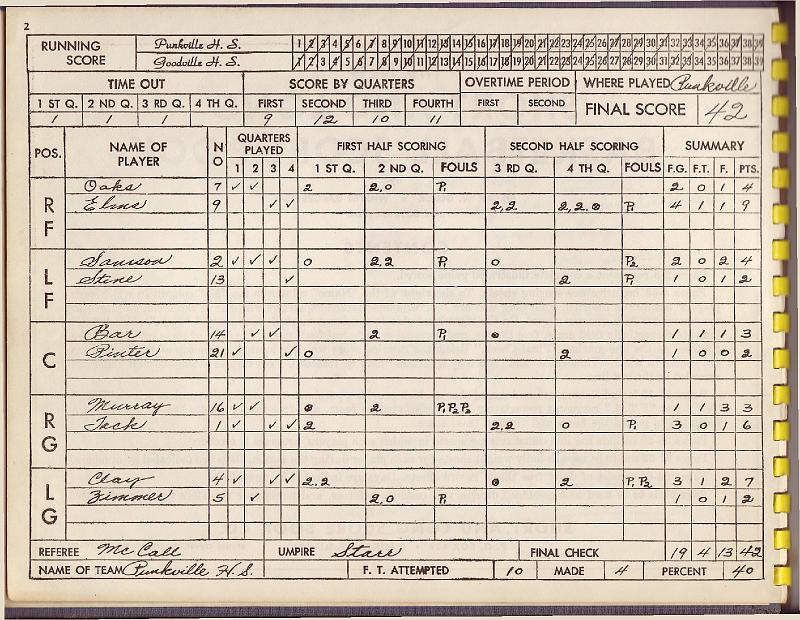 2
RUNNING SCORE Punkville H. S. 1 2 3 4 5 6 7 8 9 10 11 12 13 14 15 16 17 18 19 20 21 22 23 24 25 26 27 28 29 30 31 32 33 34 35 36 37 38 39
Goodville H. S. 1 2 3 4 5 6 7 8 9 10 11 12 13 14 15 16 17 18 19 20 21 22 23 24 25 26 27 28 29 30 31 32 33 34 35 36 37 38 39
TIME OUT SCORE BY QUARTERS OVERTIME PERIOD WHERE PLAYED Punkville
1 ST Q. 2 ND Q. 3 RD Q. 4 TH Q. FIRST SECOND THIRD FOURTH FIRST SECOND FINAL SCORE 42
1 1 1 9 12 10 11
POS. NAME OF PLAYER NO QUARTERS PLAYED FIRST HALF SCORING SECOND HALF SCORING SUMMARY
1 2 3 4 1 ST Q. 2 ND Q. FOULS 3 RD Q. 4 TH Q. FOULS F.G. F.T. F. PTS.
RF Oaks 7 ✓ ✓ 2 2,0 P1 2 0 1 4
Elms 9 ✓ ✓ 2,2 2,2,⊙ P1 4 1 1 9
LF Samson 2 ✓ ✓ ✓ 0 2,2 0 P2 2 0 2 4
Stine 13 ✓ 2 P1 1 0 1 2
C Bar 14 ✓ ✓ 2 P1 ⊙ 1 1 1 3
Pinter 21 ✓ ✓ 0 2 1 0 0 2
RG Murray 16 ✓ ✓ ⊙ 2 P1 P2 P3 1 1 3 3
Jack 1 ✓ ✓ ✓ 2 2,2 0 P1 3 0 1 6
LG Clay 4 ✓ ✓ ✓ 2,2 ⊙ 2 P1, P2 3 1 2 7
Zimmer 5 ✓ 2,0 P1 1 0 1 2
REFEREE McCall UMPIRE Starr FINAL CHECK 19 4 13 42
NAME OF TEAM Punkville H. S. F. T. ATTEMPTED 10 MADE 4 PERCENT 40